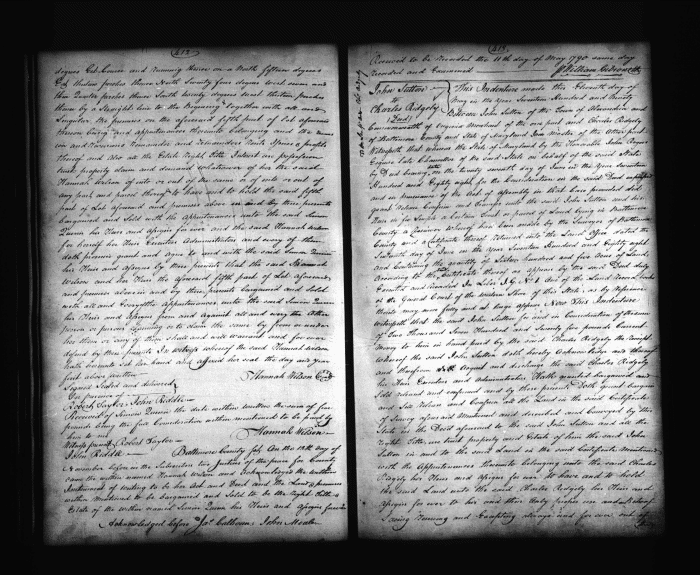 412
degrees East and running thence on a North fifteen degrees
East thirteen perches thence North Seventy four degrees west nineteen and
three Quarter perches thence South twenty degrees west thirteen perches
then by a Straight line to the beginning together with all and
Singular the premises on the aforesaid fifth part of Lot aforesaid
thereon being and appurtenances thereunto belonging and the
and Reversions Remainder and Remainders Rents Issues & profits
thereof and also all the Estate Right Title Interest use possession
trust property claim and demand whatsoever of her the said
Hannah Wilson of in or out of the same or of and or out of
any part and parcel thereof to have and to hold the said fifth
part of Lot aforesaid and premises above in and by these presents
bargained and sold with the appurtenances unto the said Simon
his Heirs and assigns for ever and the said Hannah Wilson
for herself her Heirs Executors Administrators and every of them
doth promise grant and agree to and with the said Simon
his Heirs and assigns by these presents that the said Hannah
Wilson and her Heirs the aforesaid fifth part of Lot aforesaid
and premises above in and by these presents bargained and sold
with all and every the appurtenances unto the said Simon
his Heirs and Assigns from and against all and every the other
person or persons Claiming or to claim the same by from or under
her them or any of them shall and will warrant and for ever
defend by these presents In witness whereof the said Hannah Wilson
hath hereunto set her hand and affixed her seal the day and year
first above written
Signed Sealed and delivered
In presence of Hannah Wilson
Robert Taylor John Riddle
Received of Simon the date within written the sum of five
pounds being the full Consideration within mentioned to be paid by
him to me
Witness present Robert Taylor Hannah Wilson
John Riddle
Baltimore County On the 12th day of
November before us the Subscribers two Justices of the peace for County
came the within named Hannah Wilson and acknowledged the within
Instrument of writing to be her Act and Deed and the Land & premises
within mentioned to be bargained and Sold to be the Right Title &
Estate of the within named Simon his Heirs and Assigns forever
Acknowledged before Jas. Calhoun John Moale
413
Received to be recorded the 11th day of May 1790 same day
recorded and Examined William Gibson
John Sutton
to
Charles Ridgely
This Indenture made this Eleventh day of
May in the Year Seventeen Hundred and Ninety
Between John Sutton of the Town of and
Commonwealth of Virginia of the one part and Charles Ridgely
of Baltimore County and State of Maryland of the other part
Witnesseth that whereas the State of Maryland by the Honorable John Rogers
Esquire late Chancellor of the said State on behalf of the said State
by Deed bearing date the twenty seventh day of June in the year Seventeen
Hundred and Eighty eight for the Consideration in the said Deed expressed
and in pursuance of the Act of Assembly in that Case provided did
grant release Confirm and Convey unto the said John Sutton and his
Heirs in fee Simple a Certain tract or parcel of Land lying in Baltimore
County a Survey whereof had been made by the Surveyor of Baltimore
County and a Certificate thereof returned into the Land Office dated the
Sixteenth day of June in the Year Seventeen Hundred and Eighty eight
and Containing the quantity of Sixteen hundred and five Acres of Land
According to the Certificate thereof as appears by the said Deed duly
Executed and recorded In Liber JG No 1 One of the Land Record Books
of the General Court of the Western Shore of this State, as by Reference
thereto may more fully and at large appear Now This Indenture
Witnesseth that the said John Sutton for and in Consideration of the sum
of Two Thousand Seven Hundred and Seventy five pounds Current
Money to him in hand paid by the said Charles Ridgely the Receipt
whereof the said John Sutton doth hereby Acknowledge and thereof
and therefrom doth Acquit and discharge the said Charles Ridgely
his Heirs Executors and administrators Hath granted bargained and
Sold released and confirmed and by these presents Doth grant bargain
and Sell Release and Confirm all the Land in the said Certificate
of Survey above and Mentioned and described and Conveyed by the
State in the Deed aforesaid to the said John Sutton and all the
Right Title use trust property and Estate of him the said John
Sutton in and to the said Land in the said Certificate Mentioned
with the Appurtenances thereunto belonging unto the said Charles
Ridgely his Heirs and Assigns for ever to have and to hold
the said Land unto the said Charles Ridgely his Heirs and
Assigns for ever to his and their Only proper use and behoof
Saving Reserving and Excepting always and for ever out of